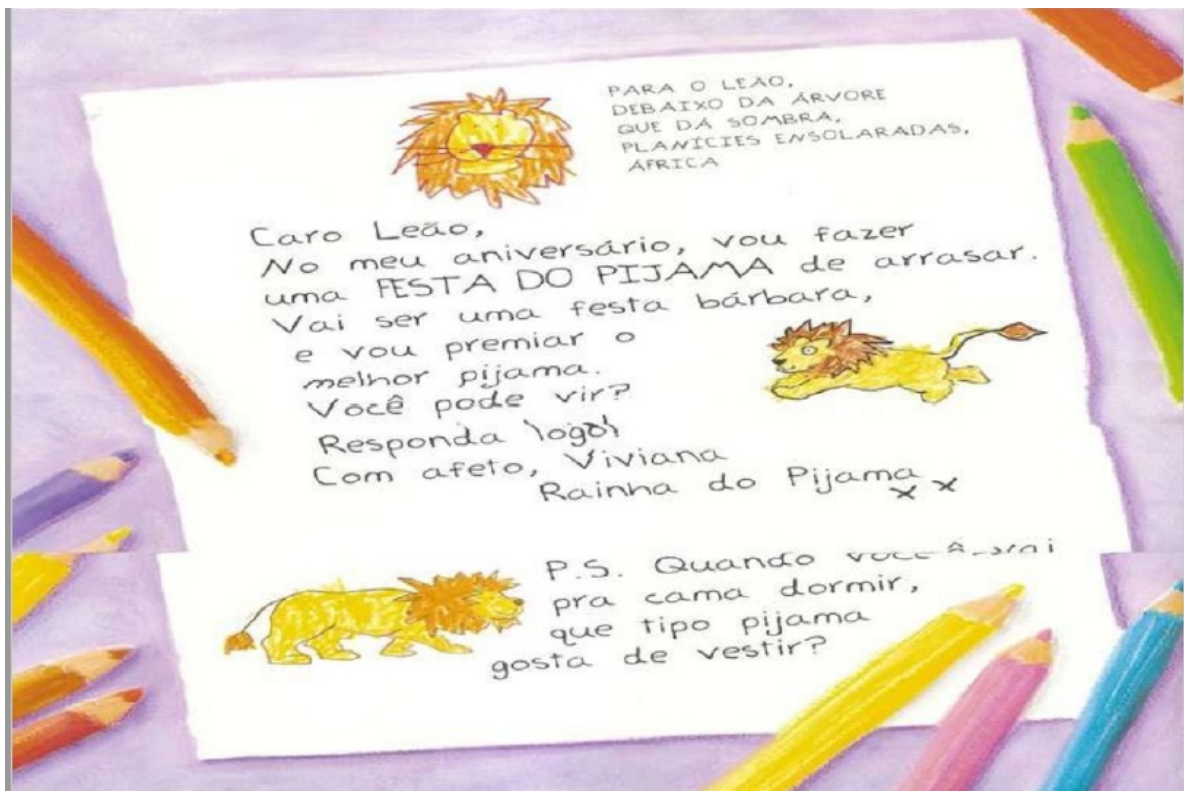 PARA O LEÃO,
DEBAIXO DA ÁRVORE
QUE DÁ SOMBRA,
PLANÍCIES ENSOLARADAS,
ÁFRICA
Caro Leão,
No meu aniversário, vou fazer
uma FESTA DO PIJAMA de arrasar.
Vai ser uma festa bárbara,
e vou premiar o
melhor pijama.
Você pode vir?
Responda logo!
Com afeto, Viviana
Rainha do Pijama
x x
P.S. Quando você vai
pra cama dormir,
que tipo pijama
gosta de vestir?